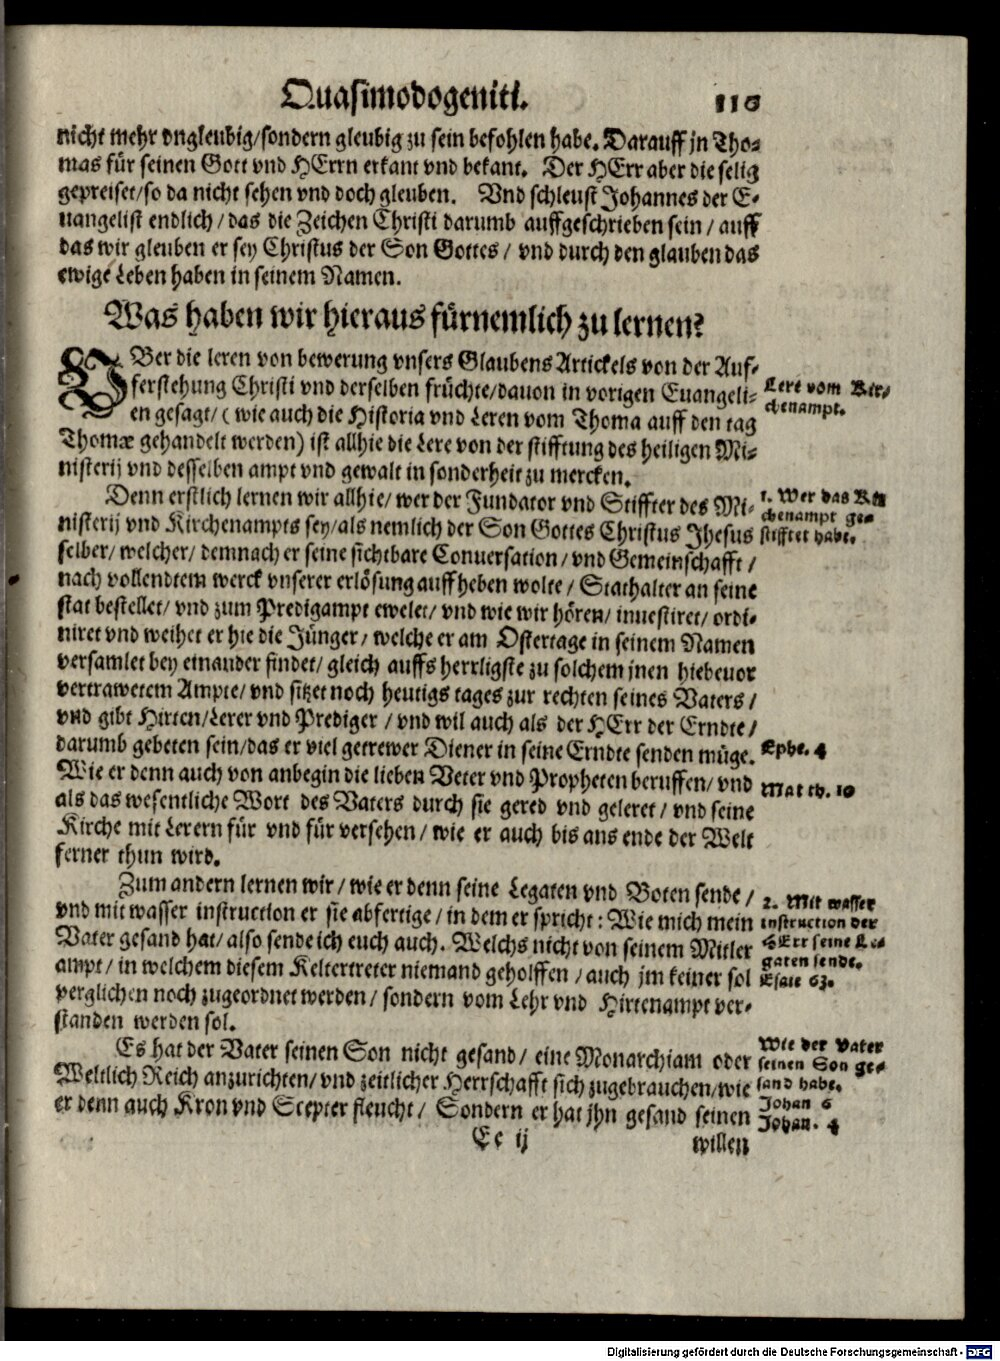 Quasimodogeniti. 110
nicht mehr vngleubig/sondern gleubig zu sein befohlen habe. Darauff jn Tho-
mas für seinen Gott vnd HErrn erkant vnd bekant. Der HErr aber die selig
gepreiset/so da nicht sehen vnd doch gleuben. Vnd schleust Johannes der E-
uangelist endlich/das die Zeichen Christi darumb auffgeschrieben sein/auff
das wir gleuben er sey Christus der Son Gottes/vnd durch den glauben das
ewige Leben haben in seinem Namen.
Was haben wir hieraus fürnemlich zu lernen?
VBer die leren von bewerung vnsers Glaubens Artickels von der Auf-
ferstehung Christi vnd derselben früchte/dauon in vorigen Euangeli-
en gesagt/(wie auch die Historia vnd Leren vom Thoma auff den tag
Thomæ gehandelt werden) ist allhie die Lere von der stifftung des heiligen Mi-
nisterij vnd desselben ampt vnd gewalt in sonderheit zu mercken.
Lere vom Kir-
chenampt.
Denn erstlich lernen wir allhie/wer der Fundator vnd Stiffter des Mi-
nisterij vnd Kirchenampts sey/als nemlich der Son Gottes Christus Jhesus
selber/welcher/demnach er seine sichtbare Conuersation/vnd Gemeinschafft/
nach vollendtem werck vnserer erlösung auffheben wolte/Stathalter an seine
stat bestellet/vnd zum Predigampt ewelet/vnd wie wir hören/inuestiret/ordi-
niret vnd weihet er hie die Jünger/welche er am Ostertage in seinem Namen
versamlet bey einander findet/gleich auffs herrligste zu solchem jnen hiebeuor
vertrawetem Ampte/vnd sitzet noch heutigs tages zur rechten seines Vaters/
vnd gibt Hirten/Lerer vnd Prediger/vnd wil auch als der HErr der Erndte/
darumb gebeten sein/das er viel getrewer Diener in seine Erndte senden müge.
Wie er denn auch von anbegin die lieben Veter vnd Propheten beruffen/vnd
als das wesentliche Wort des Vaters durch sie gered vnd geleret/vnd seine
Kirche mit Lerern für vnd für versehen/wie er auch bis ans ende der Welt
ferner thun wird.
1. Wer das Kir
chenampt ge-
stifftet habe.
Ephe. 4
Matth. 10
Zum andern lernen wir/wie er denn seine Legaten vnd Boten sende/
vnd mit wasser instruction er sie abfertige/in dem er spricht: Wie mich mein
Vater gesand hat/also sende ich euch auch. Welchs nicht von seinem Mitler
ampt/in welchem diesem Keltertreter niemand geholffen/auch jm keiner sol
verglichen noch zugeordnet werden/sondern vom Lehr vnd Hirtenampt ver-
standen werden sol.
2. Mit wasser
instruction der
HErr seine Le-
gaten sende.
Esaie 63.
Es hat der Vater seinen Son nicht gesand/eine Monarchiam oder
Weltlich Reich anzurichten/vnd zeitlicher Herrschafft sich zugebrauchen/wie
er denn auch Kron vnd Scepter fleucht/Sondern er hat jhn gesand seinen
Wie der Vater
seinen Son ge-
sand habe.
Johan 6
Johan. 4
Ee ij willen
Digitalisierung gefördert durch die Deutsche Forschungsgemeinschaft - DFG